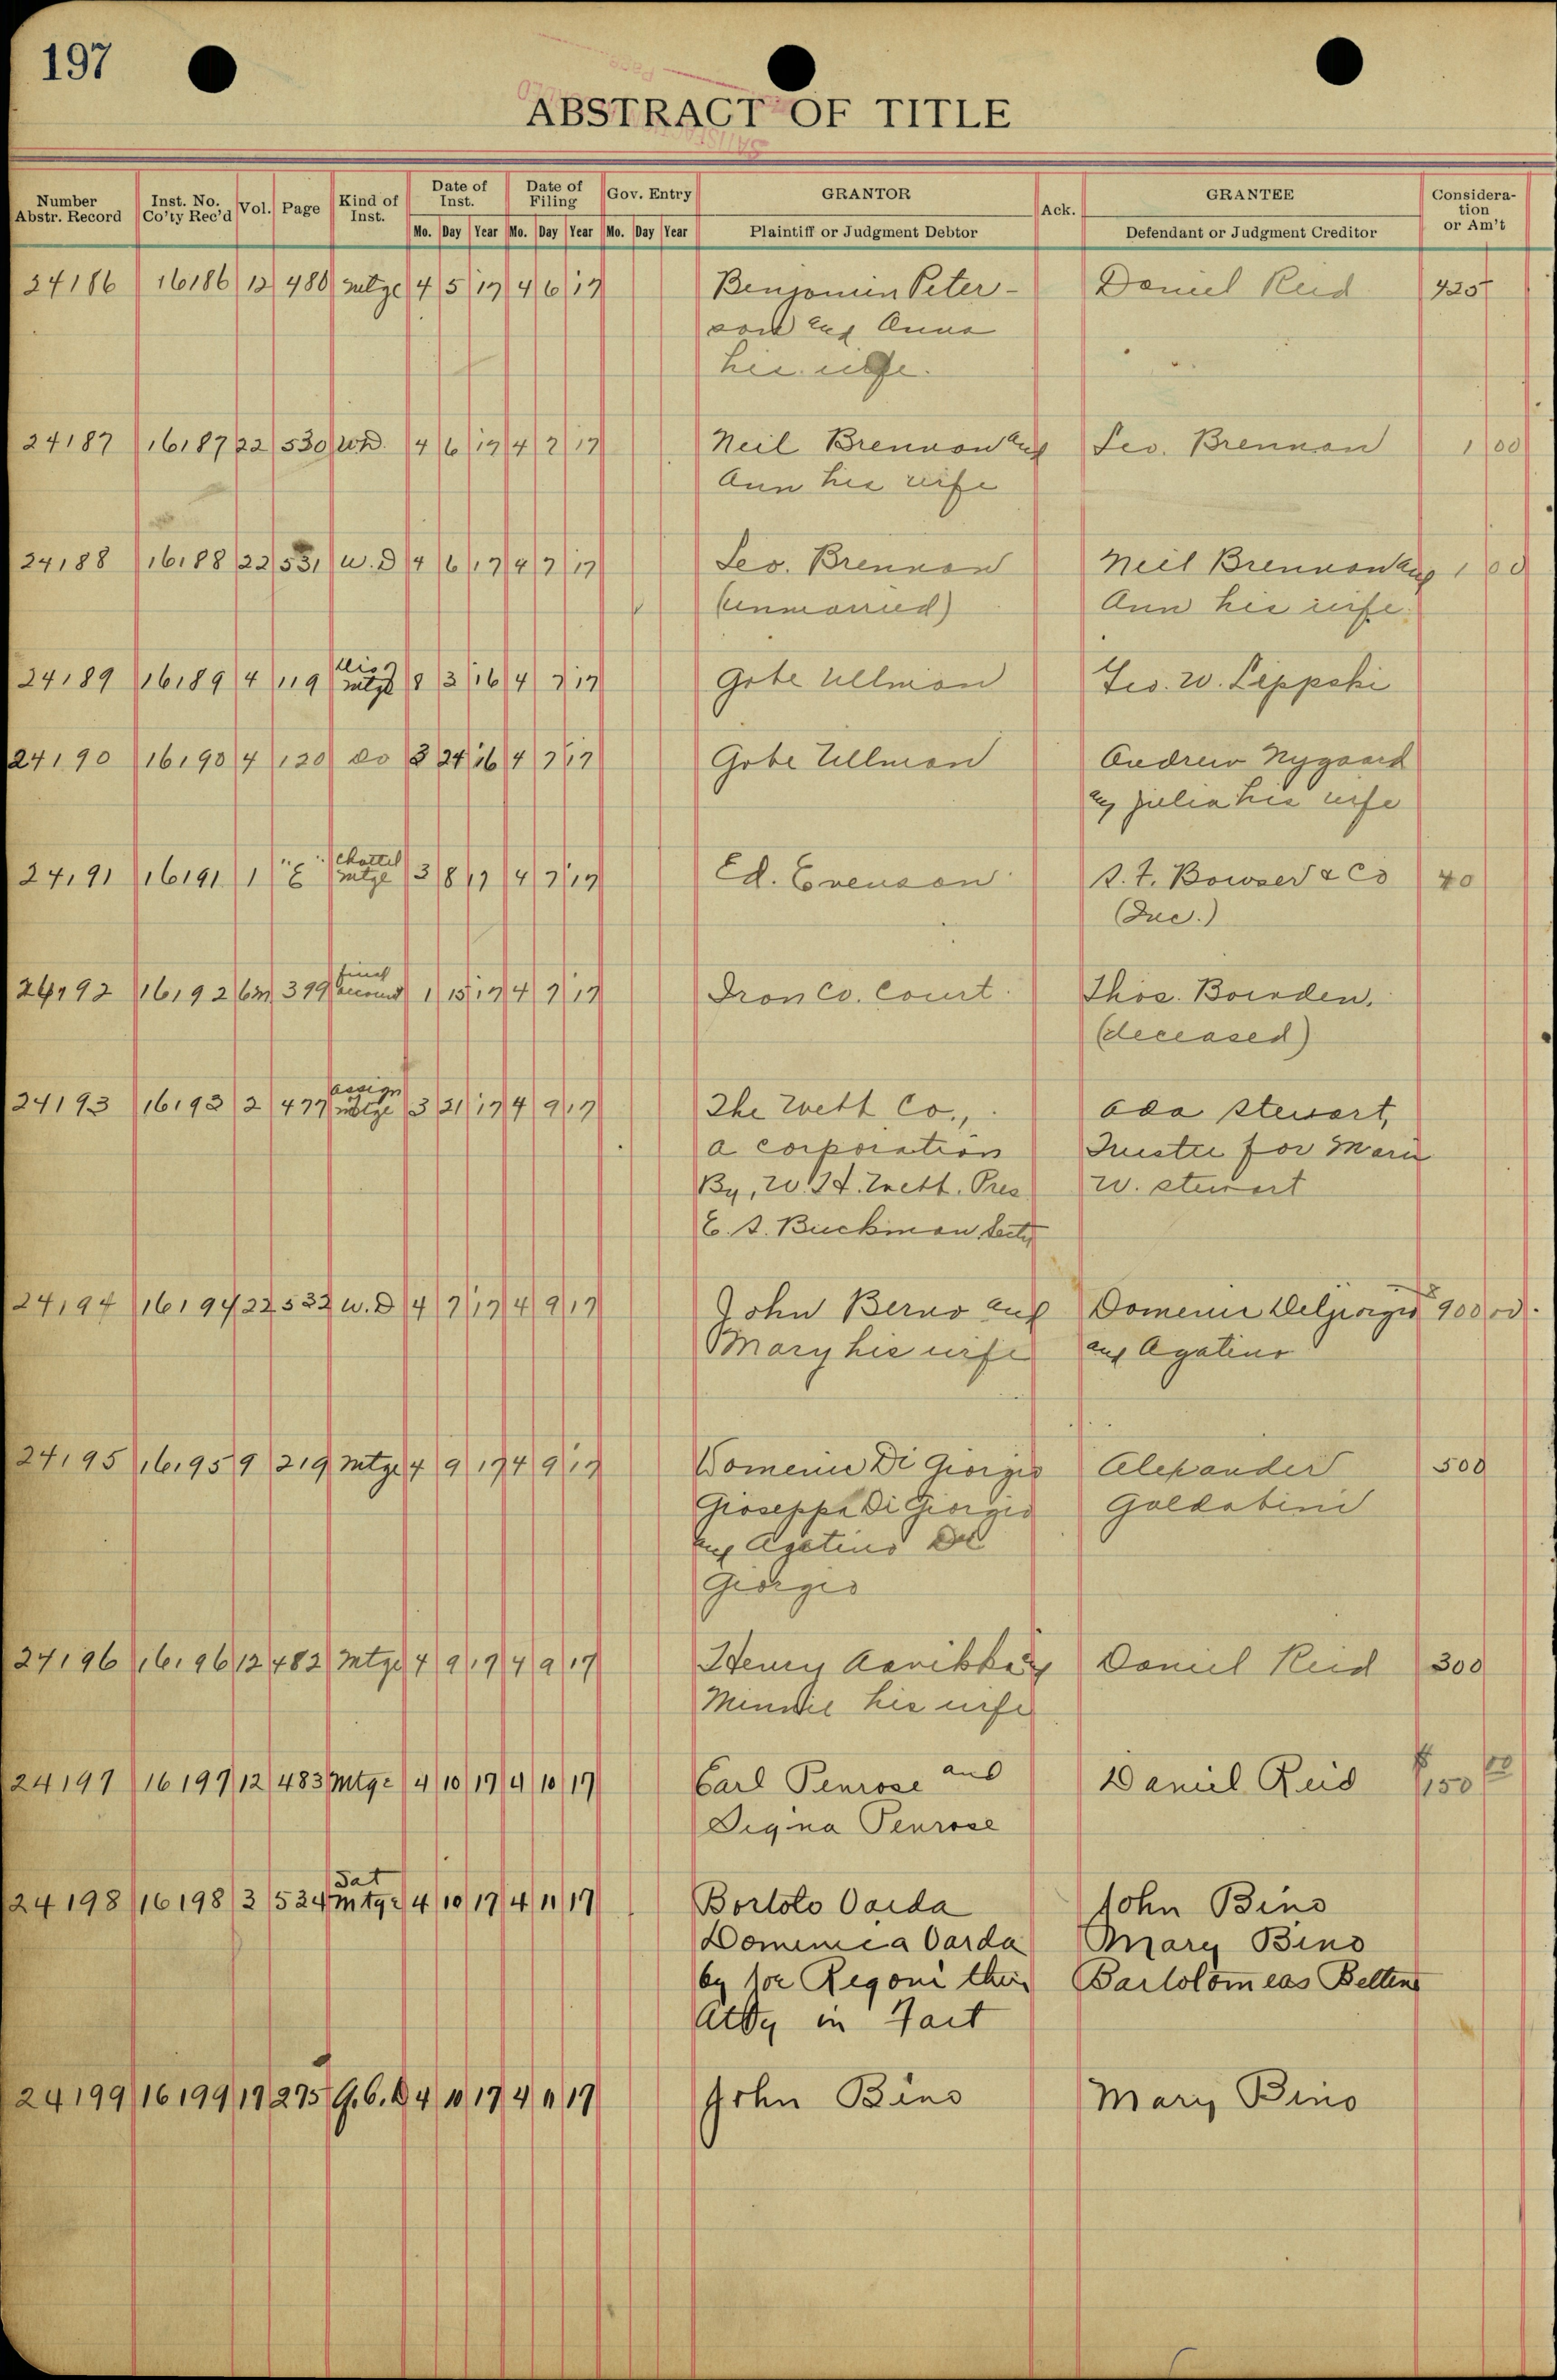 197
ABSTRACT OF TITLE
Number Abstr. Record Inst. No. Co'ty Rec'd Vol. Page Kind of Inst. Date of Inst. Date of Filing Gov. Entry GRANTOR Ack. GRANTEE Consideration or Am't
Mo. Day Year Mo. Day Year Mo. Day Year Plaintiff or Judgment Debtor Defendant or Judgment Creditor
24186 16186 12 480 mtge 4 5 17 4 6 17 Benjamin Peter- Daniel Reid 425
son and Anna
his wife.
24187 16187 22 530 W.D. 4 6 17 4 7 17 Neil Brennan and Leo. Brennan 1 00
Ann his wife
24188 16188 22 531 W.D 4 6 17 4 7 17 Leo. Brennan Neil Brennan and 1 00
(unmarried) Ann his wife.
24189 16189 4 119 Dis mtge 8 3 16 4 7 17 Gabe Ullman Geo. W. Lippski
24190 16190 4 120 do 8 24 16 4 7 17 Gabe Ullman Andrew Nygaard
and Julia his wife
24191 16191 1 "E" Chattel mtge 3 8 17 4 7 17 Ed. Evenson S. F. Bowser & Co 40
(Inc.)
24192 16192 6m 399 final account 1 15 17 4 9 17 Iron Co. Court Thos. Bowden.
(deceased)
24193 16193 2 477 assign mtge 3 21 17 4 9 17 The Co., Ada Stewart,
a corporation Trustee for Marie
By, W. H. Pres W. Stewart
E. S. Buckman Secty
24194 16194 22 532 W.D 4 7 17 4 9 17 John Berno and Domenic DelGiorgio $900 00
Mary his wife and Agatino
24195 16195 9 219 Mtge 4 9 17 4 9 17 Domenic Di Giorgio Alexander 500
Gioseppa Di Giorgio Galdabini
and Agatino Di
Giorgio
24196 16196 12 482 Mtge 4 9 17 4 9 17 Henry Daniel Reid 300
Minnie his wife
24197 16197 12 483 Mtge 4 10 17 4 10 17 Carl Penrose and Daniel Reid $150 00
Signa Penrose
24198 16198 3 524 Sat Mtge 4 10 17 4 11 17 Bortolo Varda John Bino
Domenica Varda Mary Bino
by Joe Regoni their Bartolomeas Bettens
Atty in Fact
24199 16199 19 275 Q.C.D 4 10 17 4 11 17 John Bino Mary Bino